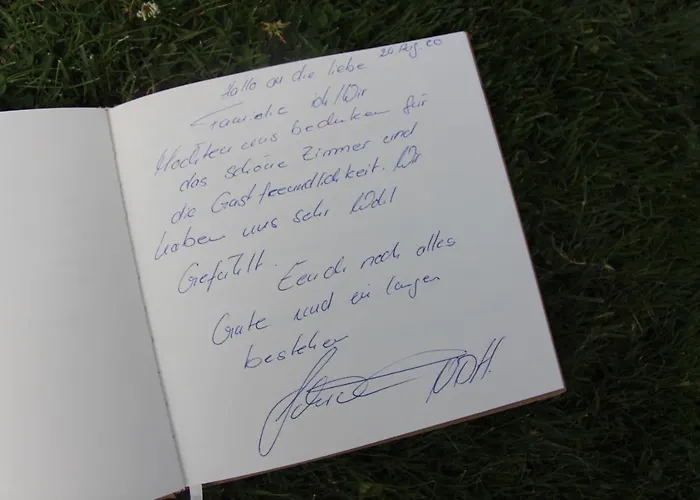 24 Aug. 20
Hallo an die liebe
Familie ich/Wir
Möchten uns bedanken für
das schöne Zimmer und
die Gastfreundlichkeit. Wir
haben uns sehr Wohl
Gefühlt.
Eeuch noch alles
Gute und ein langen
bestehen